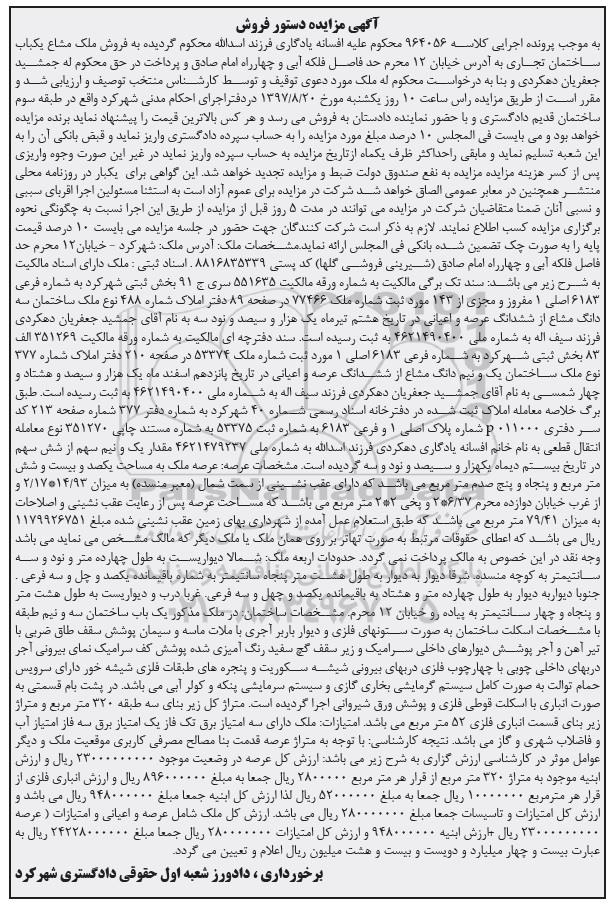 آگهی مزایده دستور فروش
به موجب پرونده اجرایی کلاسه ۹۶۴۰۵۶ محکوم علیه افسانه یادگاری فرزند اسدالله محکوم گردیده به فروش ملک مشاع یکباب
ساختمان تجاری به آدرس خیابان ۱۲ محرم حد فاصل فلکه آبی و چهارراه امام صادق و پرداخت در حق محکوم له جمشید
جعفریان دهکردی و بنا به درخواست محکوم له ملک مورد دعوی توقیف و توسط کارشناس منتخب توصیف و ارزیابی شد و
مقرر است از طریق مزایده راس ساعت ۱۰ روز یکشنبه مورخ ۱۳۹۷/۸/۲۰ دردفتراجرای احکام مدنی شهرکرد واقع در طبقه سوم
ساختمان قدیم دادگستری و با حضور نماینده دادستان به فروش می رسد و هر کس بالاترین قیمت را پیشنهاد نماید برنده مزایده
خواهد بود و می بایست فی المجلس ۱۰ درصد مبلغ مورد مزایده را به حساب سپرده دادگستری واریز نماید و قبض بانکی آن را به
این شعبه تسلیم نماید و مابقی راحداکثر ظرف یکماه ازتاریخ مزایده به حساب سپرده واریز نماید در غیر این صورت وجوه واریزی
پس از کسر هزینه مزایده مزایده به نفع صندوق دولت ضبط و مزایده تجدید خواهد شد. این گواهی برای یکبار در روزنامه محلی
منتشر همچنین در معابر عمومی الصاق خواهد شد شرکت در مزایده برای عموم آزاد است به استثنا مسئولین اجرا اقربای سببی
و نسبی آنان ضمنا متقاضیان شرکت در مزایده می توانند در مدت ۵ روز قبل از مزایده از طریق این اجرا نسبت به چگونگی نحوه
برگزاری مزایده کسب اطلاع نمایند. لازم به ذکر است شرکت کنندگان جهت حضور در جلسه مزایده می بایست ۱۰ درصد قیمت
پایه را به صورت چک تضمین شده بانکی فی المجلس ارائه نماید.مشخصات ملک: آدرس ملک: شهرکرد - خیابان۱۲ محرم حد
فاصل فلکه آبی و چهارراه امام صادق (شیرینی فروشی گلها) کد پستی ۸۸۱۶۸۳۵۳۳۹ . اسناد ثبتی : ملک دارای اسناد مالکیت
به شرح زیر می باشد: سند تک برگی مالکیت به شماره ورقه مالکیت ۵۵۱۶۳۵ سری ج ۹۱ بخش ثبتی شهرکرد به شماره فرعی
۶۱۸۳ اصلی ۱ مفروز و مجزی از ۱۴۳ مورد ثبت شماره ملک ۷۷۴۶۶ در صفحه ۸۹ دفتر املاک شماره ۴۸۸ نوع ملک ساختمان سه
دانگ مشاع از ششدانگ عرصه و اعیانی در تاریخ هشتم تیرماه یک هزار و سیصد و نود سه به نام آقای جمشید جعفریان دهکردی
فرزند سیف اله به شماره ملی ۴۶۲۱۴۹۰۴۰۰ به ثبت رسیده است. سند دفترچه ای مالکیت به شماره ورقه مالکیت ۳۵۱۲۶۹ الف
۸۳ بخش ثبتی شهرکرد به شماره فرعی ۶۱۸۳ اصلی ۱ مورد ثبت شماره ملک ۵۳۳۷۴ در صفحه ۲۱۰ دفتر املاک شماره ۳۷۷
نوع ملک ساختمان یک و نیم دانگ مشاع از ششدانگ عرصه و اعیانی در تاریخ پانزدهم اسفند ماه یک هزار و سیصد و هشتاد و
چهار شمسی به نام آقای جمشید جعفریان دهکردی فرزند سیف اله به شماره ملی ۴۶۲۱۴۹۰۴۰۰ به ثبت رسیده است. طبق
برگ خلاصه معامله املاک ثبت شده در دفترخانه اسناد رسمی شماره ۴۰ شهرکرد به شماره دفتر ۳۷۷ شماره صفحه ۲۱۳ کد
سر دفتری p۰۱۱۰۰۰ شماره پلاک اصلی ۱ و فرعی ۶۱۸۳ به شماره ثبت ۵۳۳۷۵ به شماره مستند چاپی ۳۵۱۲۷۰ نوع معامله
انتقال قطعی به نام خانم افسانه یادگاری دهکردی فرزند اسدالله به شماره ملی ۴۶۲۱۴۷۹۲۳۷ مقدار یک و نیم سهم از شش سهم
در تاریخ بیستم دیماه یکهزار و سیصد و نود و سه گردیده است. مشخصات عرصه: عرصه ملک به مساحت یکصد و بیست و شش
متر مربع و پنجاه و پنج صدم متر مربع می باشد که دارای عقب نشینی از سمت شمال (معبر منسده) به میزان ۱۴/۹۳*۲/۱۷ و
از غرب خیابان دوازده محرم ۶/۳۷*۲ و پخی ۲*۲ متر مربع می باشد که مساحت عرصه پس از رعایت عقب نشینی و اصلاحات
به میزان ۷۹/۴۱ متر مربع می باشد که طبق استعلام عمل آمده از شهرداری بهای زمین عقب نشینی شده مبلغ ۱۱۷۹۹۲۶۷۵۱
ریال می باشد که اعطای حقوقات مرتبط به صورت تهاتر بر روی همان ملک یا ملک دیگر که مالک مشخص می نماید می باشد
وجه نقد در این خصوص به مالک پرداخت نمی گردد. حدودات اربعه ملک: شمالا دیواریست به طول چهارده متر و نود و سه
سانتیمتر به کوچه منسده. شرقا دیوار به دیوار به طول هشت متر پنجاه سانتیمتر به شماره باقیمانده یکصد و چل و سه فرعی .
جنوبا دیواربه دیوار به طول چهارده متر و هشتاد به باقیمانده یکصد و چهل و سه فرعی. غربا درب و دیواریست به طول هشت متر
و پنجاه و چهار سانتیمتر به پیاده رو خیابان ۱۲ محرم. مشخصات ساختمان: در ملک مذکور یک باب ساختمان سه و نیم طبقه
با مشخصات اسکلت ساختمان به صورت ستونهای فلزی و دیوار باربر آجری با ملات ماسه و سیمان پوشش سقف طاق ضربی با
تیر آهن و آجر پوشش دیوارهای داخلی سرامیک و زیر سقف گچ سفید رنگ آمیزی شده پوشش کف سرامیک نمای بیرونی آجر
دربهای داخلی چوبی با چهارچوب فلزی دربهای بیرونی شیشه سکوریت و پنجره های طبقات فلزی شیشه خور دارای سرویس
حمام توالت به صورت کامل سیستم گرمایشی بخاری گازی و سیستم سرمایشی پنکه و کولر آبی می باشد. در پشت بام قسمتی به
صورت انباری با اسکلت قوطی فلزی و پوشش ورق شیروانی اجرا گردیده است. متراژ کل زیر بنای سه طبقه ۳۲۰ متر مربع و متراژ
زیر بنای قسمت انباری فلزی ۵۲ متر مربع می باشد. امتیازات: ملک دارای سه امتیاز برق تک فاز یک امتیاز برق سه فاز امتیاز آب
و فاضلاب شهری و گاز می باشد. نتیجه کارشناسی: با توجه به متراژ عرصه قدمت بنا مصالح مصرفی کاربری موقعیت ملک و دیگر
عوامل موثر در کارشناسی ارزش گزاری به شرح زیر می باشد: ارزش کل عرصه در وضعیت موجود ۲۳۰۰۰۰۰۰۰۰۰ ریال و ارزش
ابنیه موجود به متراژ ۳۲۰ متر مربع از قرار هر متر مربع ۲۸۰۰۰۰۰ ریال جمعا به مبلغ ۸۹۶۰۰۰۰۰۰ ریال و ارزش انباری فلزی از
قرار هر مترمربع ۱۰۰۰۰۰۰ ریال جمعا به مبلغ ۵۲۰۰۰۰۰۰ ریال لذا ارزش کل ابنیه جمعا مبلغ ۹۴۸۰۰۰۰۰۰ ریال می باشد و
ارزش کل امتیازات و تاسیسات جمعا مبلغ ۲۸۰۰۰۰۰۰۰ ریال می باشد. ارزش کل ملک شامل عرصه و اعیانی و امتیازات ( عرصه
۲۳۰۰۰۰۰۰۰۰۰ ریال +ارزش ابنیه ۹۴۸۰۰۰۰۰۰ و ارزش کل امتیازات ۲۸۰۰۰۰۰۰۰ ریال جمعا مبلغ ۲۴۲۲۸۰۰۰۰۰۰ ریال به
عبارت بیست و چهار میلیارد و دویست و بیست و هشت میلیون ریال اعلام و تعیین می گردد.
برخورداری ، دادورز شعبه اول حقوقی دادگستری شهرکرد